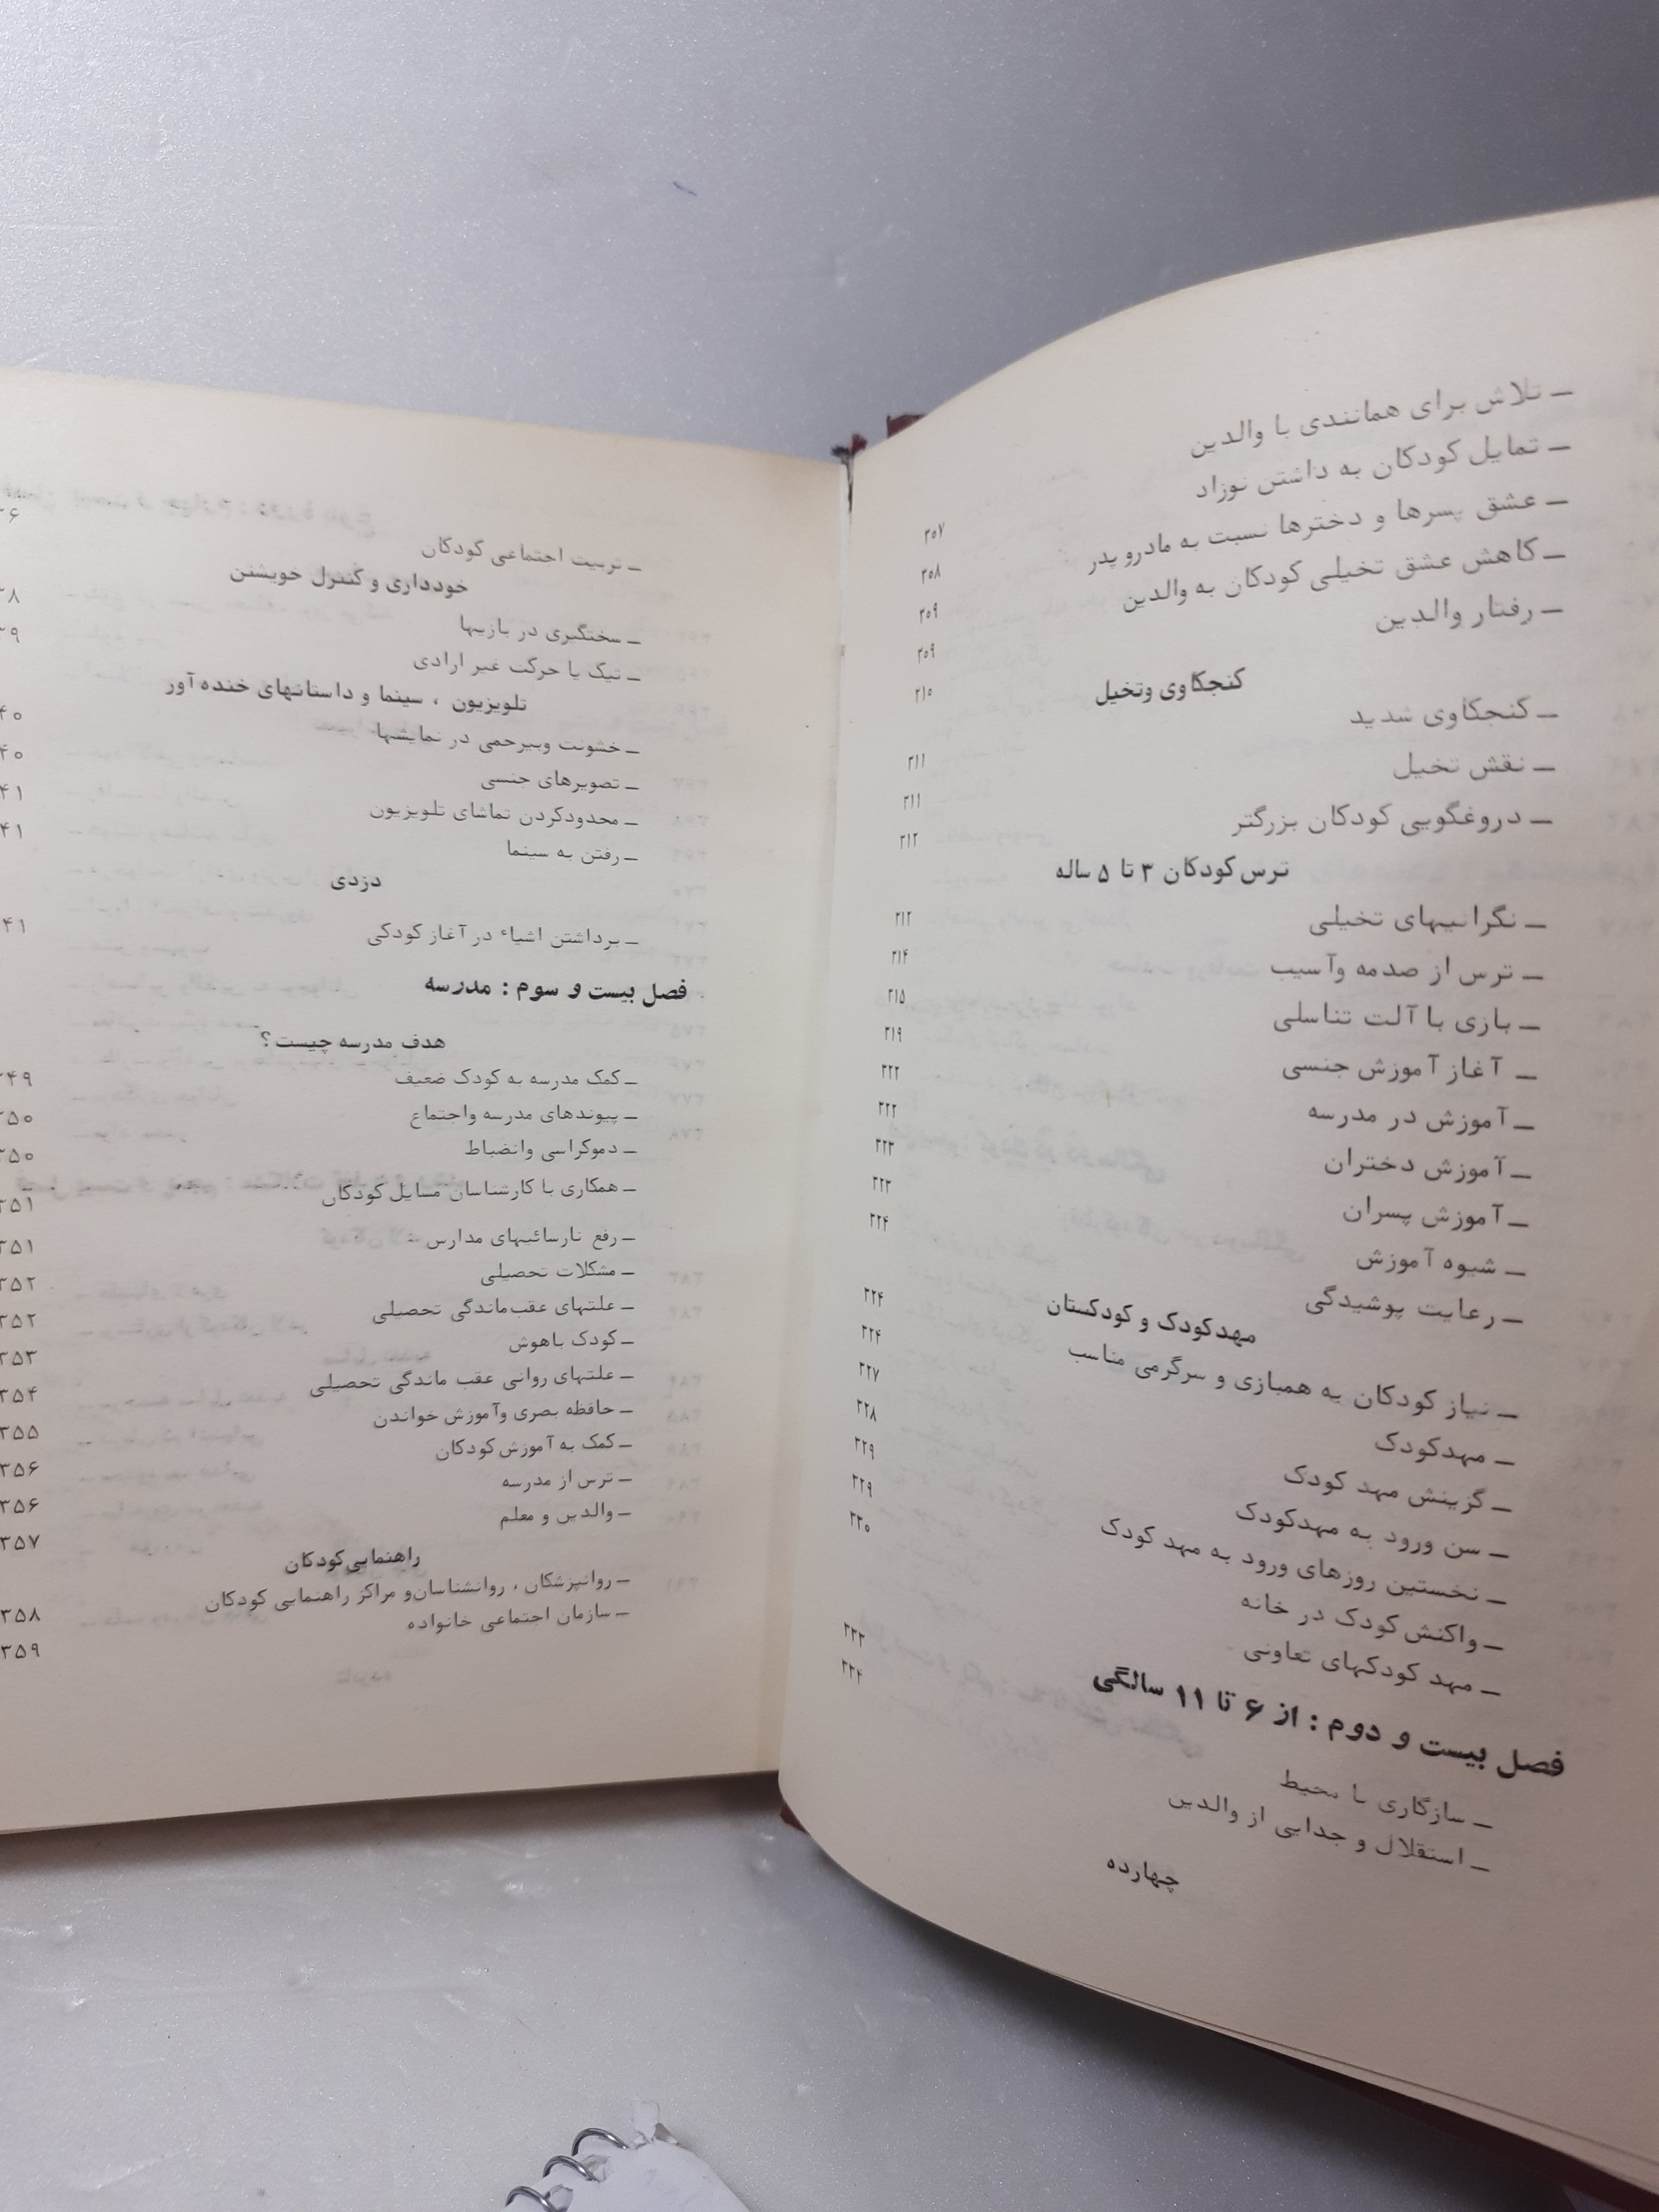 ـ تلاش برای همانندی با والدین ۳۰۷
ـ تمایل کودکان به داشتن نوزاد ۳۰۸
ـ عشق پسرها و دخترها نسبت به مادرو پدر ۳۰۹
ـ کاهش عشق تخیلی کودکان به والدین ۳۰۹
ـ رفتار والدین ۳۱۰
کنجکاوی وتخیل
ـ کنجکاوی شدید ۳۱۱
ـ نقش تخیل ۳۱۱
ـ دروغگویی کودکان بزرگتر ۳۱۲
ترس کودکان ۳ تا ۵ ساله
ـ نگرانیهای تخیلی ۳۱۲
ـ ترس از صدمه وآسیب ۳۱۴
ـ بازی با آلت تناسلی ۳۱۵
ـ آغاز آموزش جنسی ۳۱۹
ـ آموزش در مدرسه ۳۲۲
ـ آموزش دختران ۳۲۲
ـ آموزش پسران ۳۲۳
ـ شیوه آموزش ۳۲۳
ـ رعایت پوشیدگی ۳۲۴
مهدکودک و کودکستان
ـ نیاز کودکان به همبازی و سرگرمی مناسب ۳۲۴
ـ مهدکودک ۳۲۴
ـ گزینش مهد کودک ۳۲۷
ـ سن ورود به مهدکودک ۳۲۸
ـ نخستین روزهای ورود به مهد کودک ۳۲۹
ـ واکنش کودک در خانه ۳۲۹
ـ مهد کودکهای تعاونی ۳۳۰
فصل بیست و دوم : از ۶ تا ۱۱ سالگی
ـ سازگاری با محیط ۳۳۳
ـ استقلال و جدایی از والدین ۳۳۴
چهارده
ـ تربیت اجتماعی کودکان ۳۶
خودداری و کنترل خویشتن
ـ سختگیری در بازیها ۳۸
ـ تیک یا حرکت غیر ارادی ۳۹
تلویزیون ، سینما و داستانهای خنده آور
ـ خشونت وبیرحمی در نمایشها ۴۰
ـ تصویرهای جنسی ۴۰
ـ محدودکردن تماشای تلویزیون ۴۱
ـ رفتن به سینما ۴۱
دزدی
ـ برداشتن اشیاء در آغاز کودکی ۴۱
فصل بیست و سوم : مدرسه
هدف مدرسه چیست؟
ـ کمک مدرسه به کودک ضعیف ۳۴۹
ـ پیوندهای مدرسه واجتماع ۳۵۰
ـ دموکراسی وانضباط ۳۵۰
ـ همکاری با کارشناسان مسایل کودکان ۳۵۱
ـ رفع نارسائیهای مدارس ۳۵۱
ـ مشکلات تحصیلی ۳۵۲
ـ علتهای عقب‌ماندگی تحصیلی ۳۵۲
ـ کودک باهوش ۳۵۳
ـ علتهای روانی عقب ماندگی تحصیلی ۳۵۴
ـ حافظه بصری وآموزش خواندن ۳۵۵
ـ کمک به آموزش کودکان ۳۵۶
ـ ترس از مدرسه ۳۵۶
ـ والدین و معلم ۳۵۷
راهنمایی‌کودکان
ـ روانپزشکان ، روانشناسان‌و مراکز راهنمایی کودکان ۳۵۸
ـ سازمان اجتماعی خانواده ۳۵۹